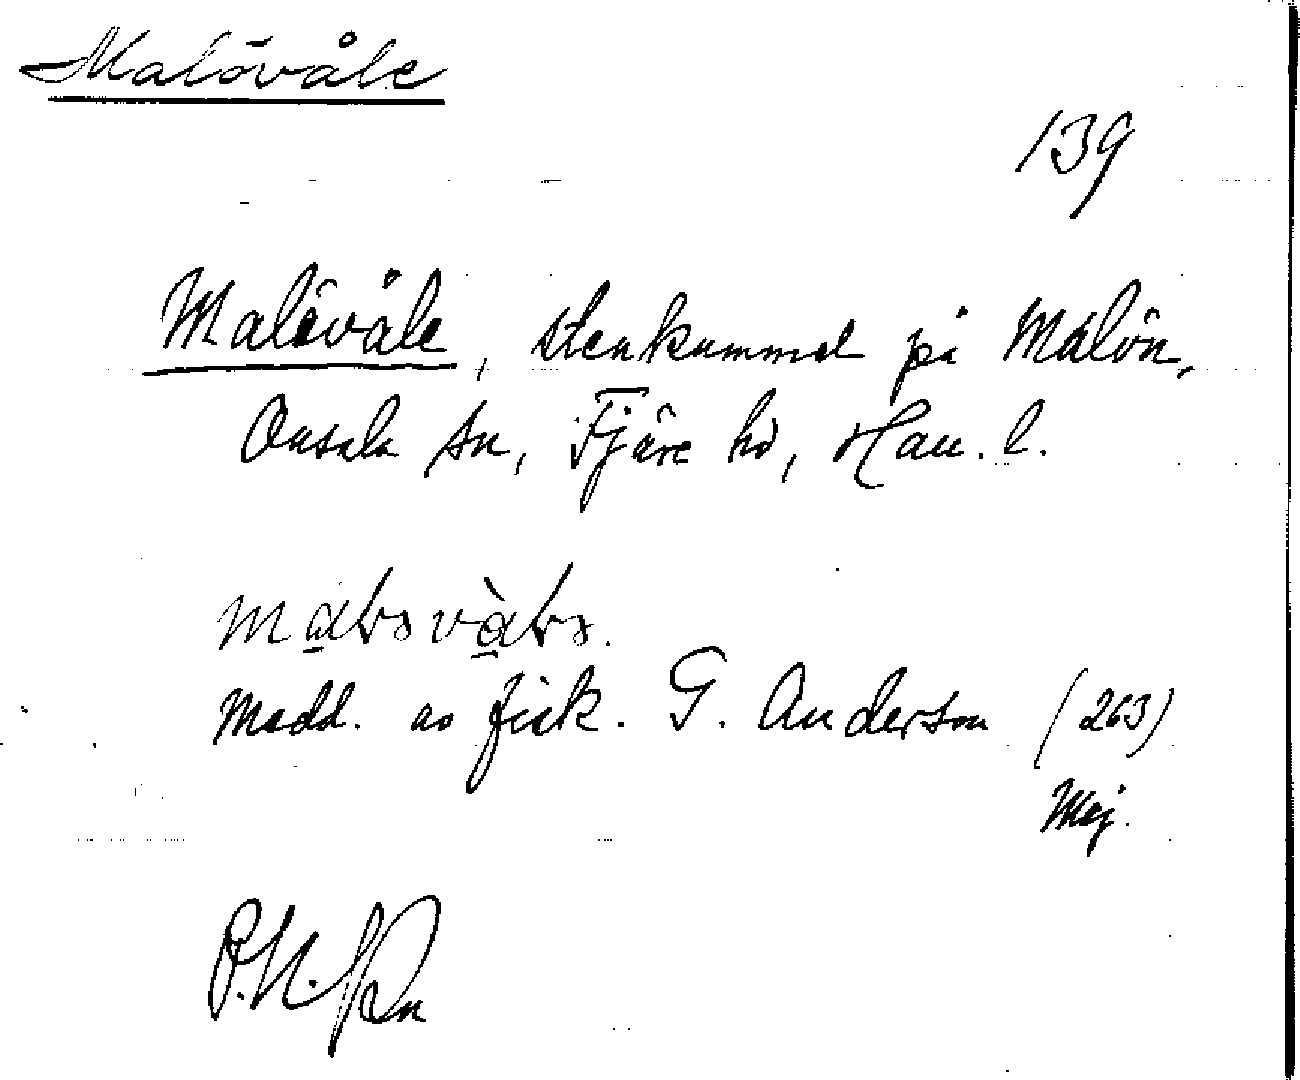 Malövåle
139
Malövåle, stenkummel på Malön,
Onsala sn, Fjäre hd, Hall. l.
Medd. av fisk. G. Anderson (263)
Maj.